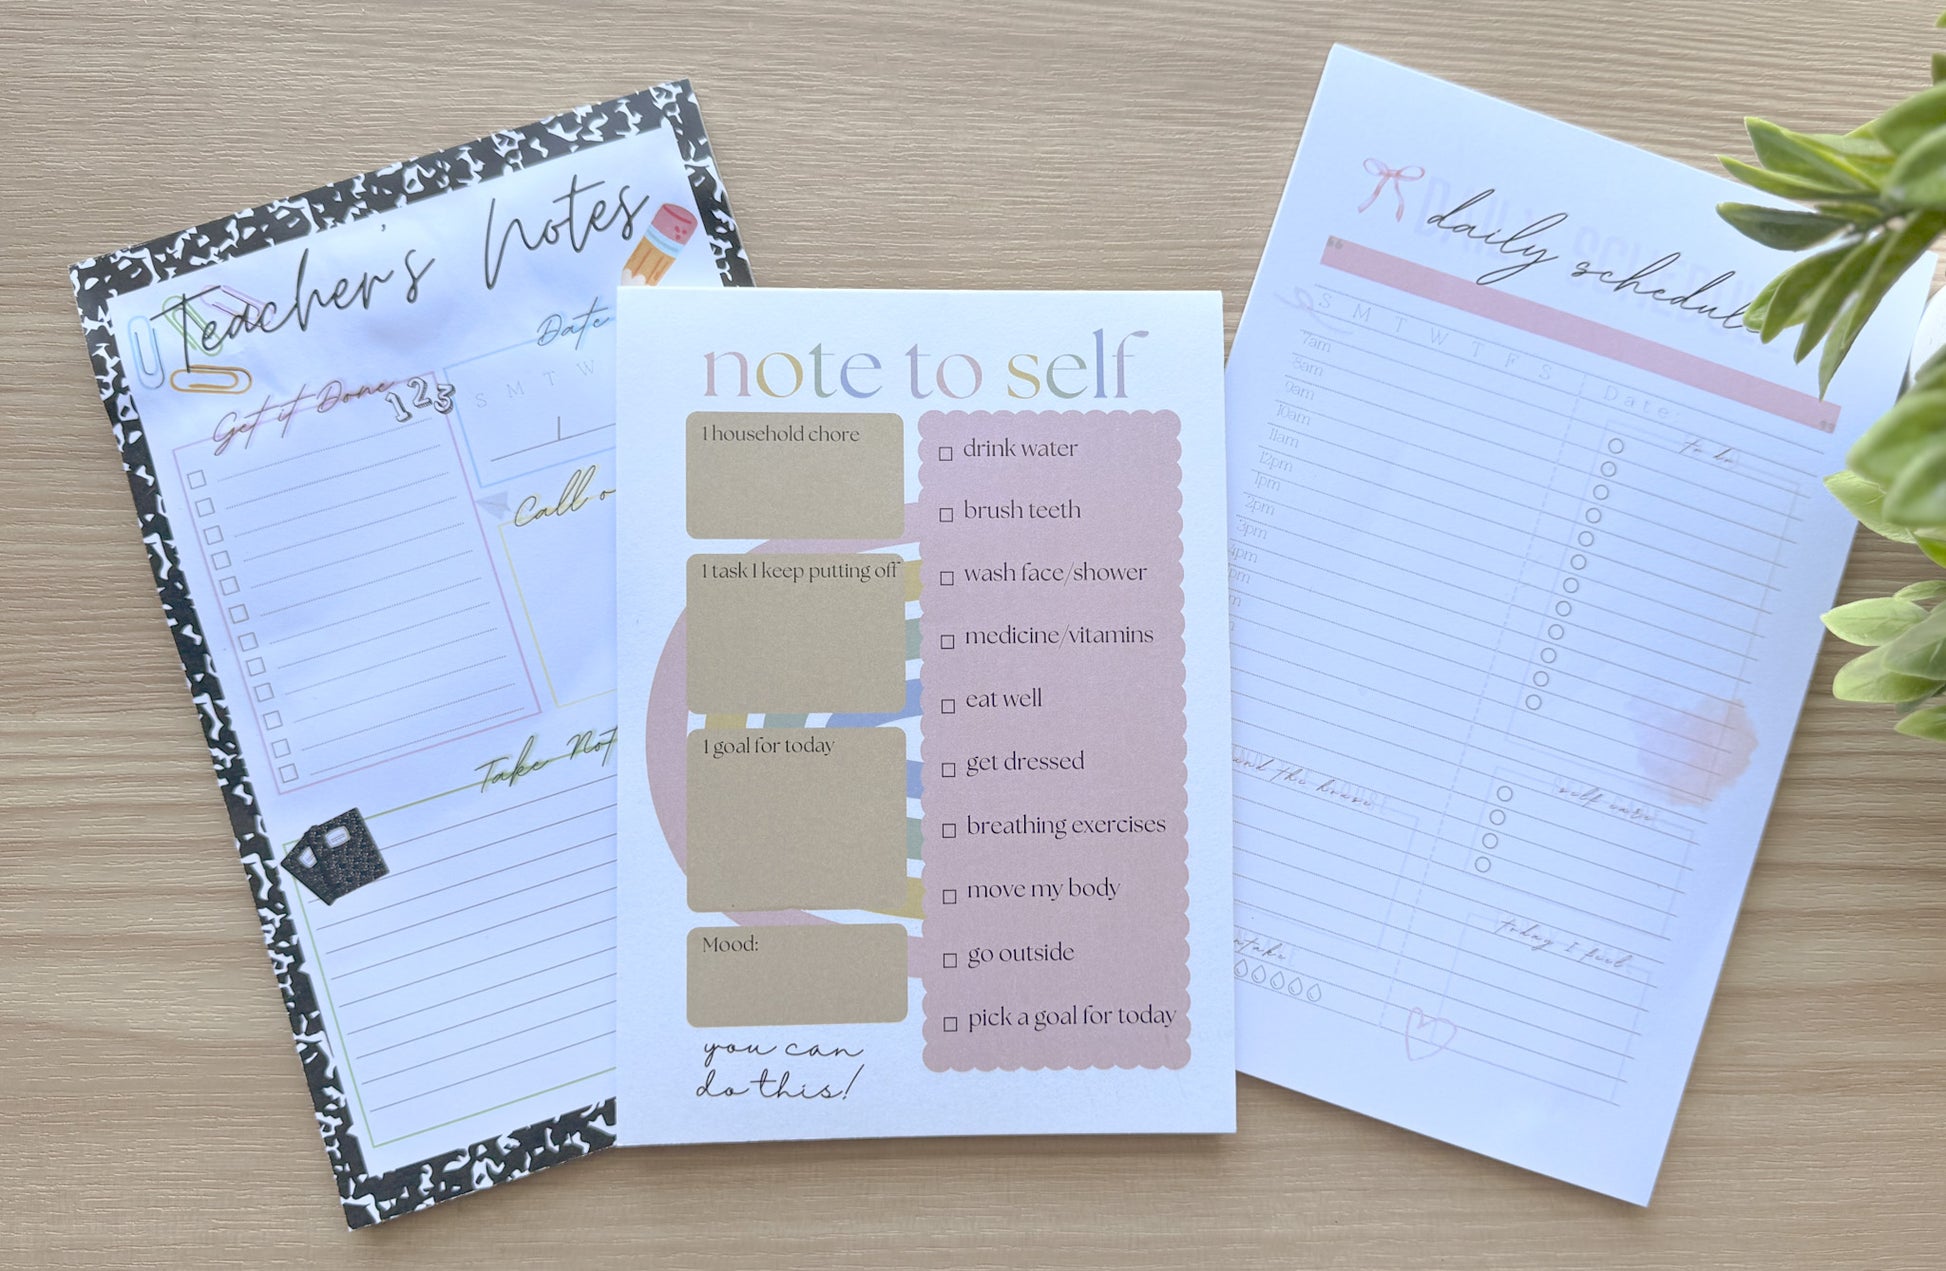 Teacher's Notes
Date
Get it Done
123
S M T W
Call
Take
note to self
1 household chore
1 task I keep putting off
1 goal for today
Mood:
you can
do this!
drink water
brush teeth
wash face/shower
medicine/vitamins
eat well
get dressed
breathing exercises
move my body
go outside
pick a goal for today
daily schedule
S M T W T F S
Date:
7am
8am
9am
10am
11am
12pm
1pm
2pm
3pm
4pm
pm
to do
the house
self care
today I feel